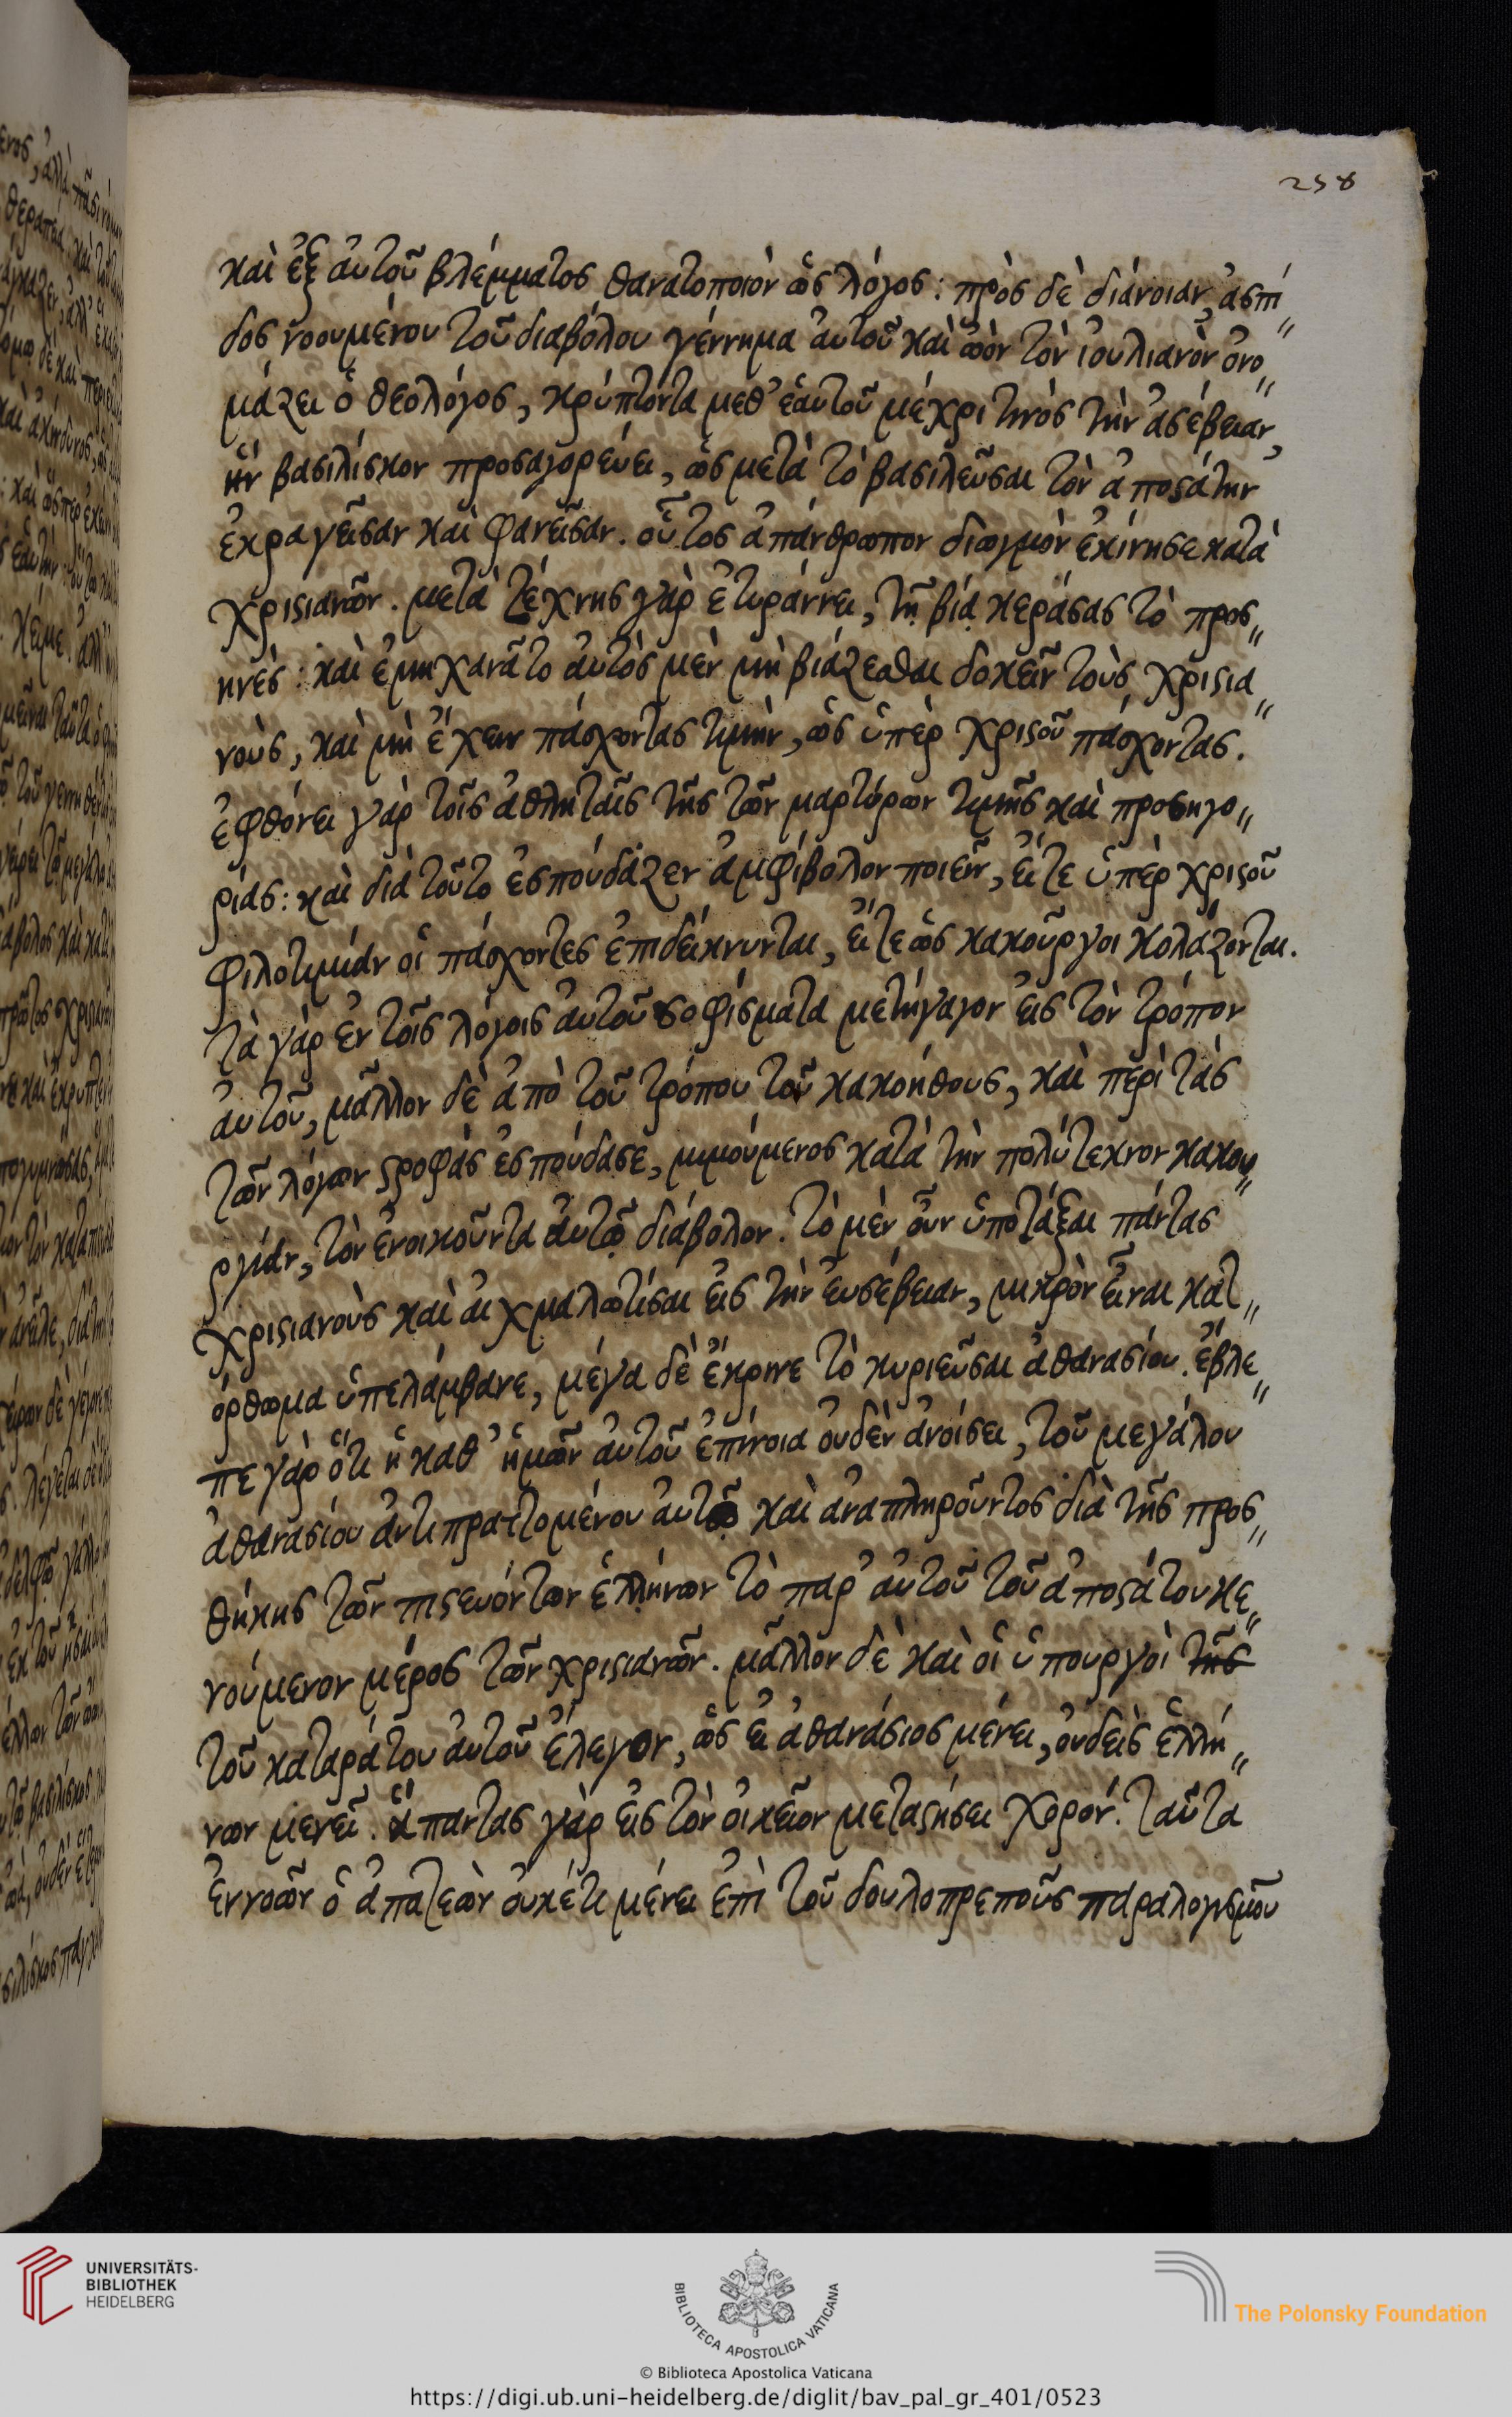 258
καὶ ἐξ αὐτοῦ βλέμματος θανατοποιὸν ὡς λόγος: πρὸς δὲ διάνοιαν, ἀσπί„
δος νοουμένου τοῦ διαβόλου γέννημα αὐτοῦ καὶ ὠὸν τὸν ἰουλιανὸν ὀνο„
μάζει ὁ θεολόγος, κρύπτοντα μεθ' ἑαυτοῦ μέχρι τινὸς τὴν ἀσέβειαν,
ἣν βασιλίσκον προσαγορεύει, ὡς μετὰ τὸ βασιλεῦσαι τὸν ἀποϛάτην
ἐκραγεῖσαν καὶ φανεῖσαν. οὗτος ἀπάνθρωπον διωγμὸν ἐκίνησε κατὰ
χριϛιανῶν. μετὰ τέχνης γὰρ ἐτυράννει, τῇ βίᾳ κεράσας τὸ προσ„
ηνές: καὶ ἐμηχανᾶτο αὐτὸς μὲν μὴ βιάζεσθαι δοκεῖν τοὺς χριϛια„
νοὺς, καὶ μὴ ἔχειν πάσχοντας τιμὴν, ὡς ὑπὲρ χριϛοῦ πάσχοντας.
ἐφθόνει γὰρ τοῖς ἀθληταῖς τῆς τῶν μαρτύρων τιμῆς καὶ προσηγο„
ρίας: καὶ διὰ τοῦτο ἐσπούδαζεν ἀμφίβολον ποιεῖν, εἴτε ὑπὲρ χριϛοῦ
φιλοτιμίαν οἱ πάσχοντες ἐπιδείκνυνται, εἴτε ὡς κακοῦργοι κολάζονται.
τὰ γὰρ ἐν τοῖς λόγοις αὐτοῦ σοφίσματα μετήγαγον εἰς τὸν τρόπον
αὐτοῦ, μᾶλλον δὲ ἀπὸ τοῦ τρόπου τοῦ κακοήθους, καὶ περὶ τὰς
τῶν λόγων ϛροφὰς ἐσπούδασε, μιμούμενος κατὰ τὴν πολύτεχνον κακου„
ργίαν, τὸν ἐνοικοῦντα αὐτῷ διάβολον. τὸ μὲν οὖν ὑποτάξαι πάντας
χριϛιανοὺς καὶ αἰχμαλωτίσαι εἰς τὴν εὐσέβειαν, μικρὸν εἶναι κατ„
όρθωμα ὑπελάμβανε, μέγα δὲ ἔκρινε τὸ κυριεῦσαι ἀθανασίου. ἔβλε„
πε γὰρ ὅτι ἡ καθ' ἡμῶν αὐτοῦ ἐπίνοια οὐδὲν ἀνοίσει, τοῦ μεγάλου
ἀθανασίου ἀντιπραττομένου αὐτῷ καὶ ἀναπληροῦντος διὰ τῆς προσ„
θήκης τῶν πιϛευόντων ἑλλήνων τὸ παρ' αὐτοῦ τοῦ ἀποϛάτου κε„
νούμενον μέρος τῶν χριϛιανῶν. μᾶλλον δὲ καὶ οἱ ὑπουργοὶ τῆς
τοῦ καταράτου αὐτοῦ ἔλεγον, ὡς εἰ ἀθανάσιος μένει, οὐδεὶς ἑλλή„
νων μενεῖ. ἅπαντας γὰρ εἰς τὸν οἰκεῖον μεταϛήσει χορόν. ταῦτα
ἐννοῶν ὁ ἀπατεὼν οὐκέτι μένει ἐπὶ τοῦ δουλοπρεποῦς παραλογισμοῦ
UNIVERSITÄTS-
BIBLIOTHEK
HEIDELBERG
BIBLIOTECA APOSTOLICA VATICANA
The Polonsky Foundation
© Biblioteca Apostolica Vaticana
https://digi.ub.uni-heidelberg.de/diglit/bav_pal_gr_401/0523